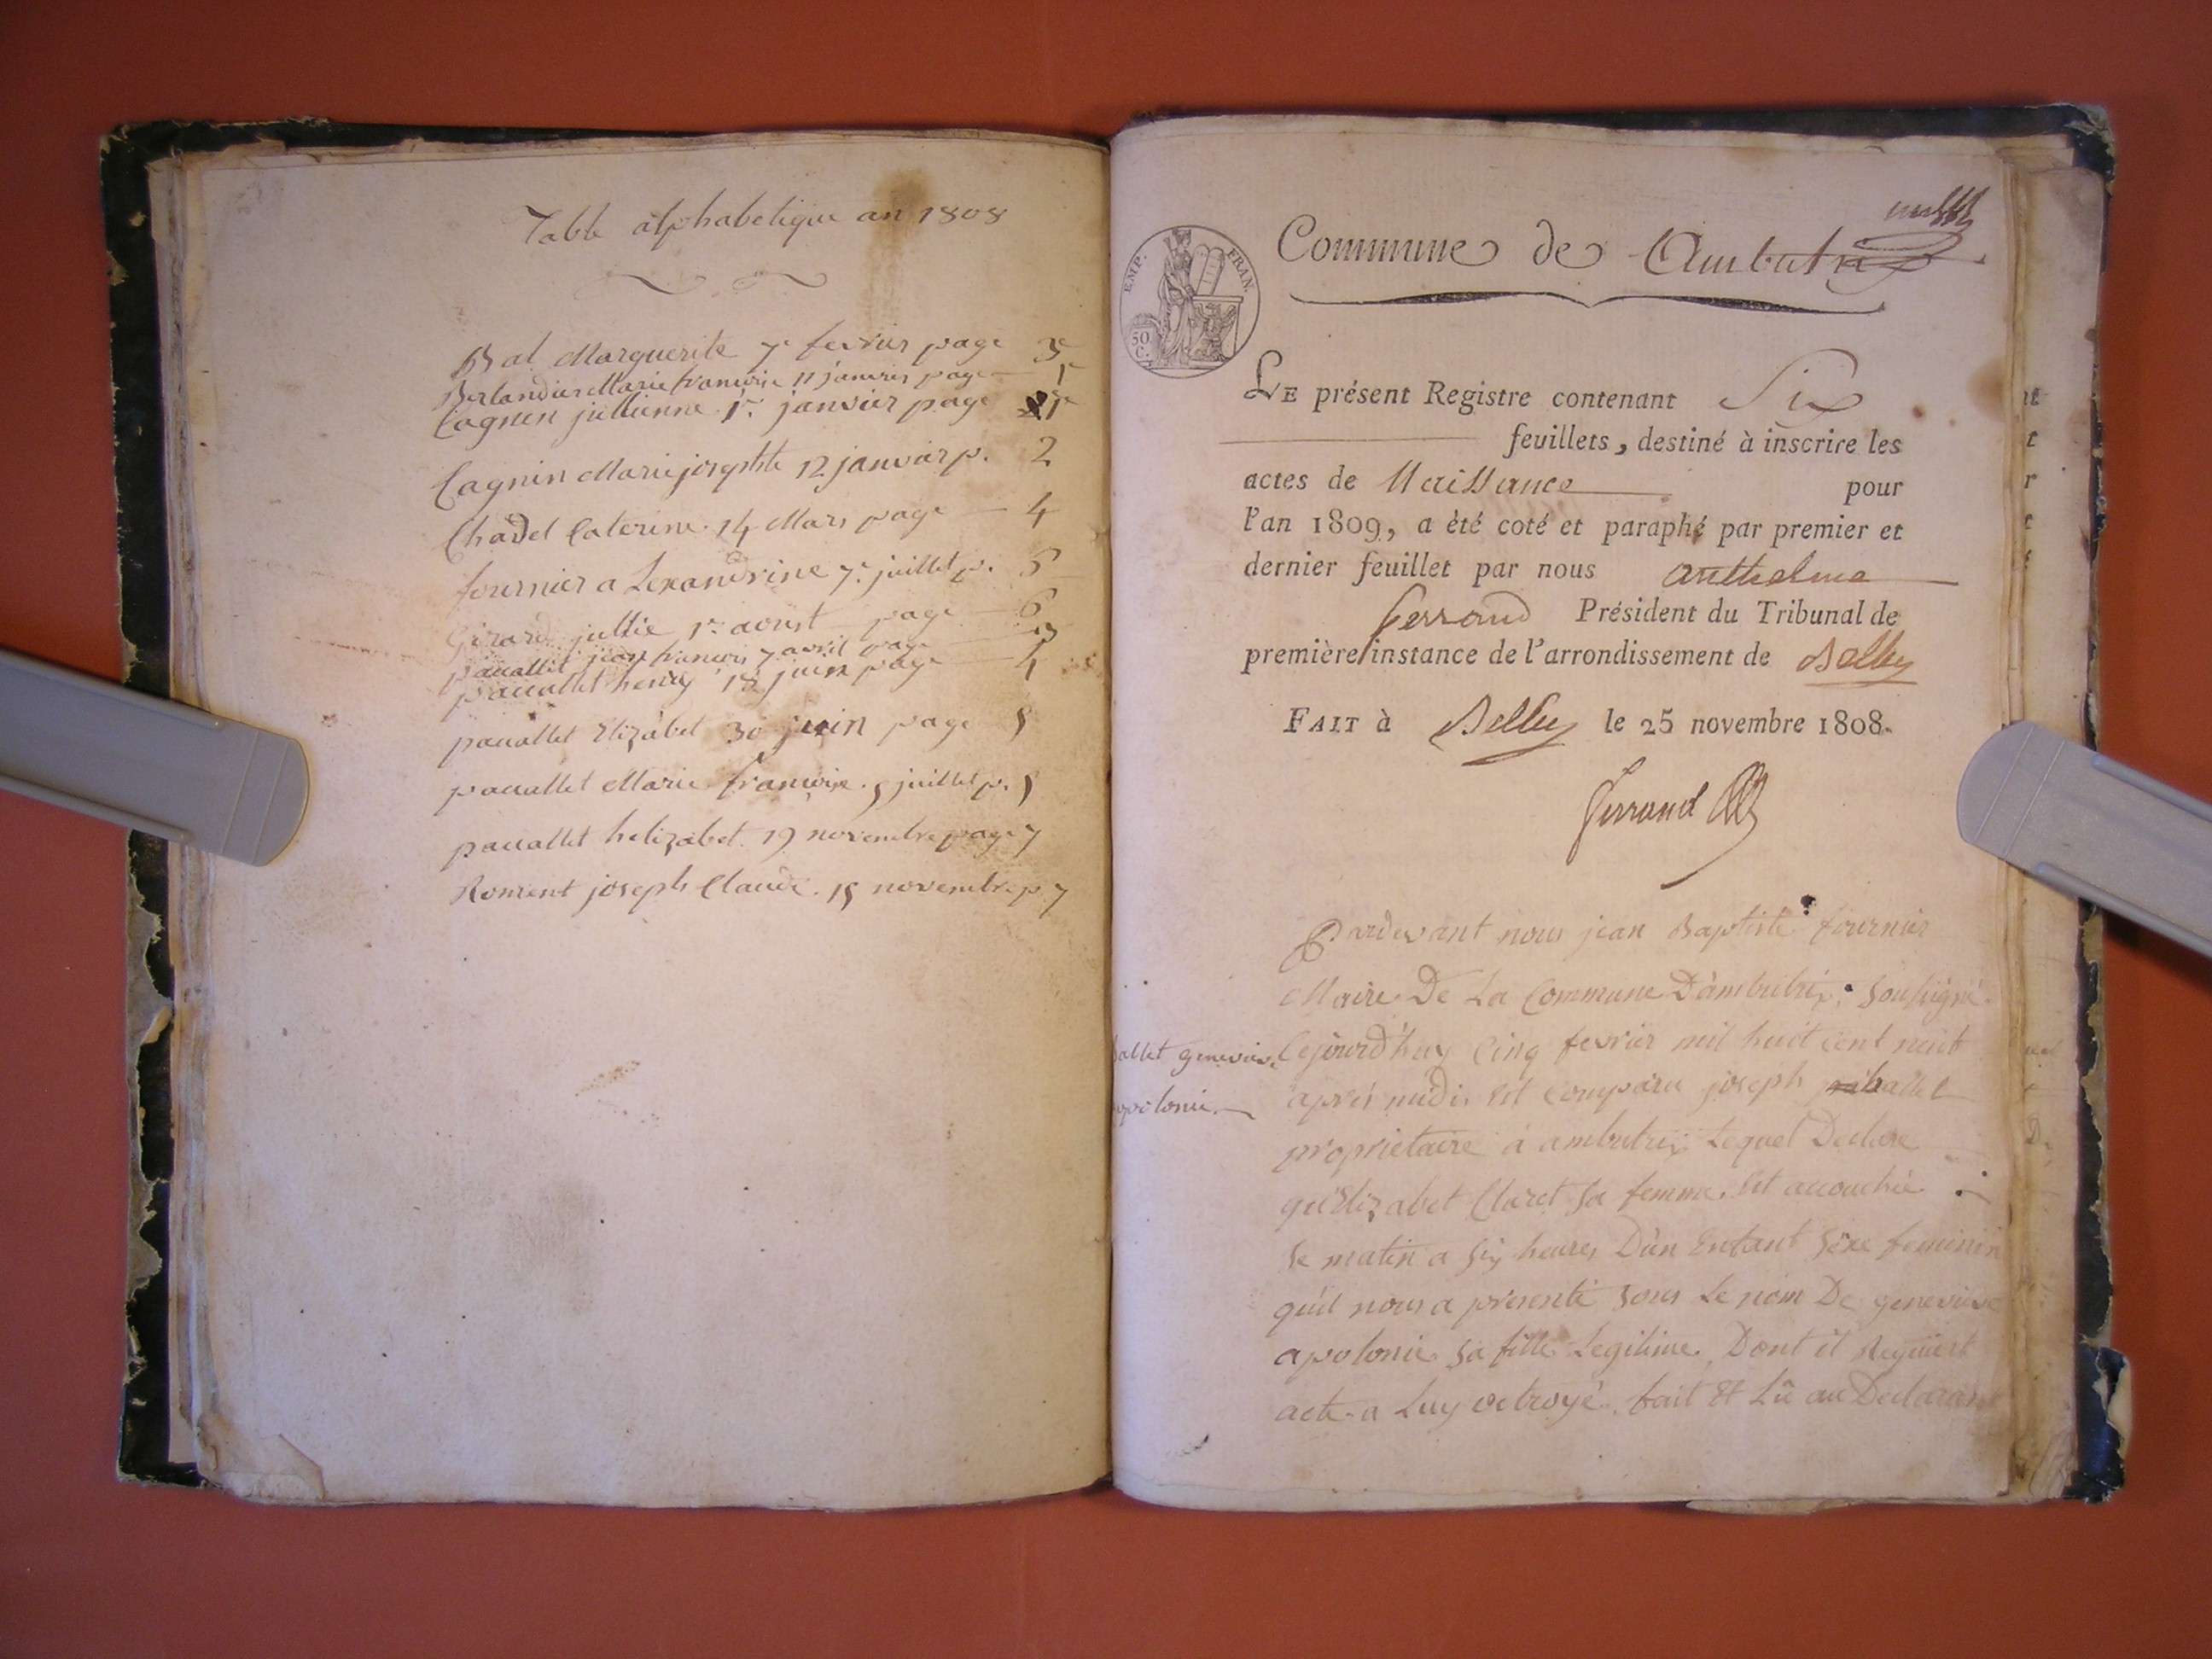 Table alphabetique an 1808
Bal Marguerite 7e fevrier page 3e
Berlandier Marie francoise 11 janvier page 1e
Cagnin jullienne 1r. janvier page 1e
Cagnin Marie josephte 12 janvier p. 2
Chadel Caterine. 14 Mars page 4
fournier a Lexandrine 7e. juillet p. 6
Girard jullie 1r. aoust page 6
pauallet jean francois 7 avril page
pauallet henry 18 juin page 4
pauallet Elizabet 30 juin page 5
pauallet Marie francoise. 5 juillet p. 5
pauallet helizabet. 19 novembre page 7
Roment joseph Claude. 15 novembre p 7
Commune de Ambutrix
EMP. FRAN.
50 C.
LE présent Registre contenant Six
feuillets, destiné à inscrire les
actes de Naissance pour
l'an 1809, a été coté et paraphé par premier et
dernier feuillet par nous anthelme
ferrand Président du Tribunal de
première instance de l'arrondissement de Belley
FAIT à Belley le 25 novembre 1808.
ferrand
Pardevant nous jean Baptiste fournier
Maire De La Commune D'ambutrix. Sousigné.
allet genevieve
apolonie.
Cejourd'huy Cinq fevrier mil huit cent neuf
aprés midi. Est comparu joseph paballet
proprietaire à ambutrix Lequel Declare
qu'Elizabet Claret Sa femme. Est accouchée
Se matin a Six heures D'un Enfant Séxe feminin
qu'il nous a presenté Sous Le nom De genevieve
apolonie Sa fille Legitime. Dont il Requiert
acte. a Luy octroyé. fait Et Lû au Declarant